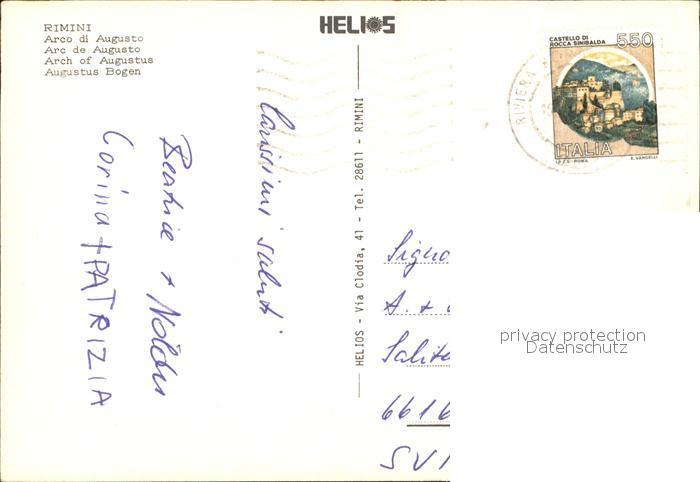 RIMINI
Arco di Augusto
Arc de Augusto
Arch of Augustus
Augustus Bogen
HELIOS
CASTELLO DI
ROCCA SINIBALDA
550
ITALIA
I.P.Z.S. ROMA
E. VANGELLI
RIVIERA
Carissimi saluti
Beatrice +
Corina + PATRIZIA
HELIOS - Via Clodia, 41 - Tel. 28611 - RIMINI
Signo
A. +
Salite
6616
SVI
privacy protection
Datenschutz